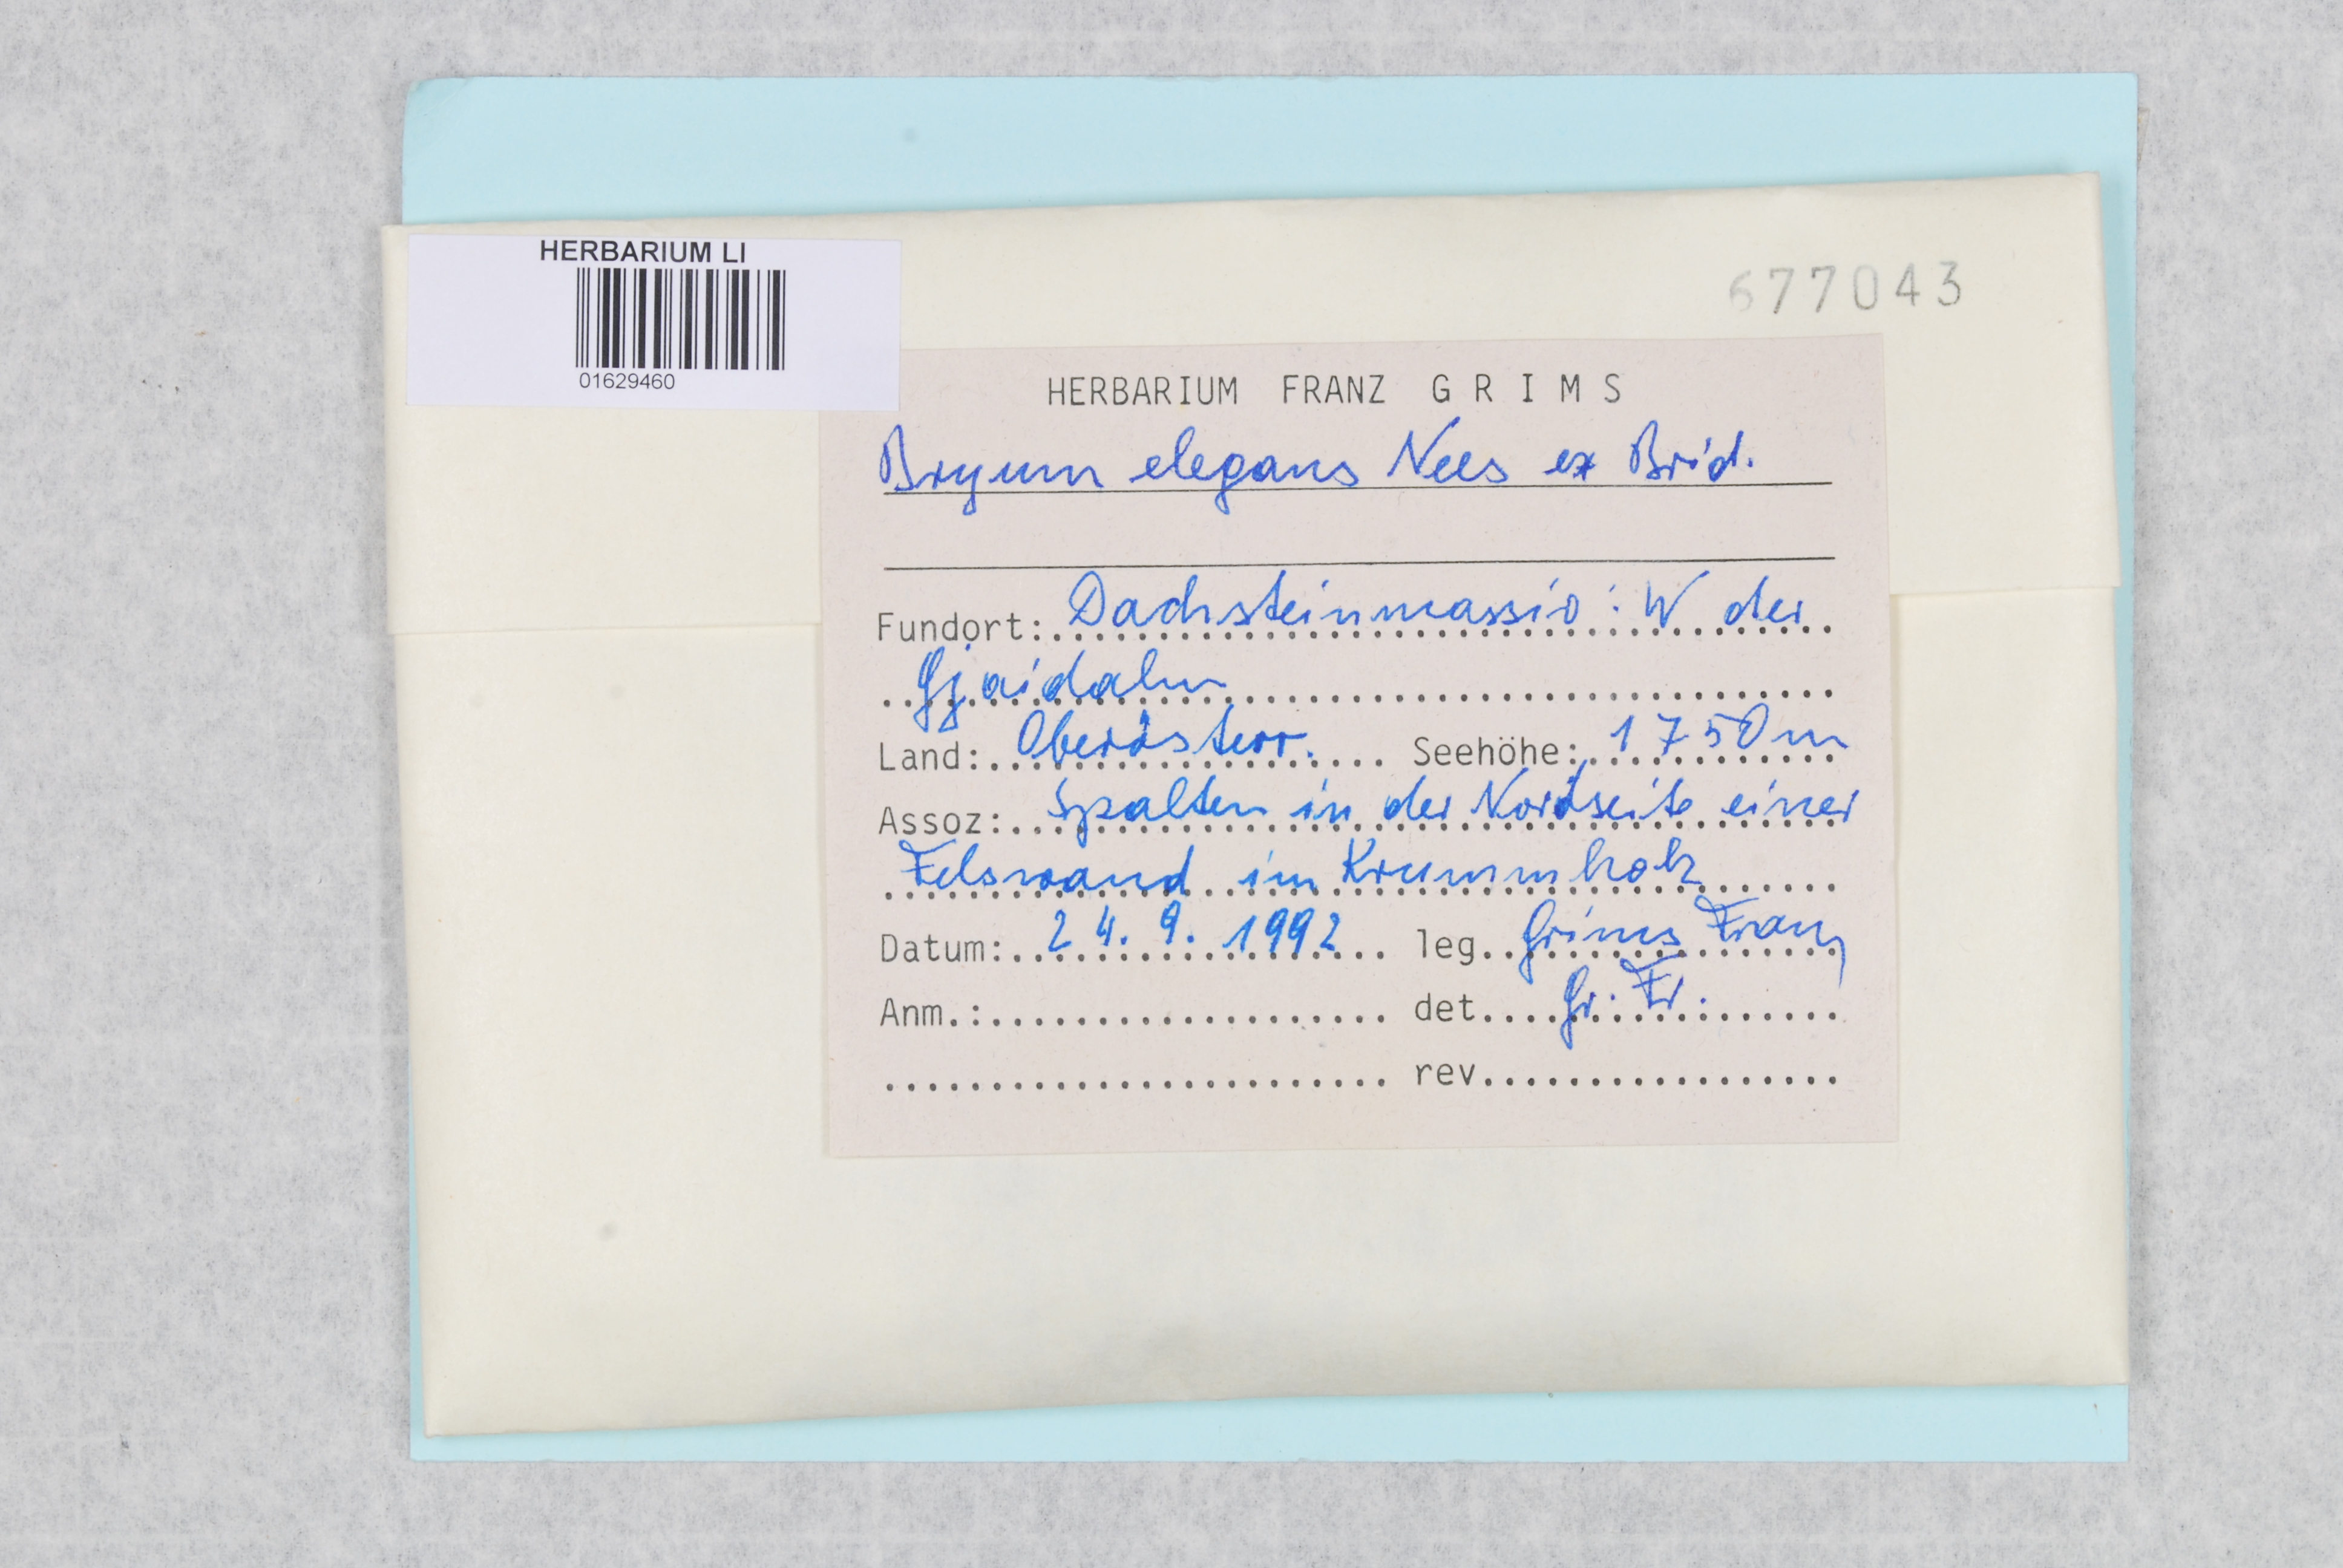 HERBARIUM LI
01629460
677043
HERBARIUM FRANZ GRIMS
Bryum elegans Nees ex Brid.
Fundort: Dachsteinmassiv: W der
Gjaidalm
Land: Oberösterr. Seehöhe: 1750m
Assoz: Spalten in der Nordseite einer
Felswand im Krummholz
Datum: 24. 9. 1992 leg. Grims Franz
Anm.: det. Gr. Fr.
rev.